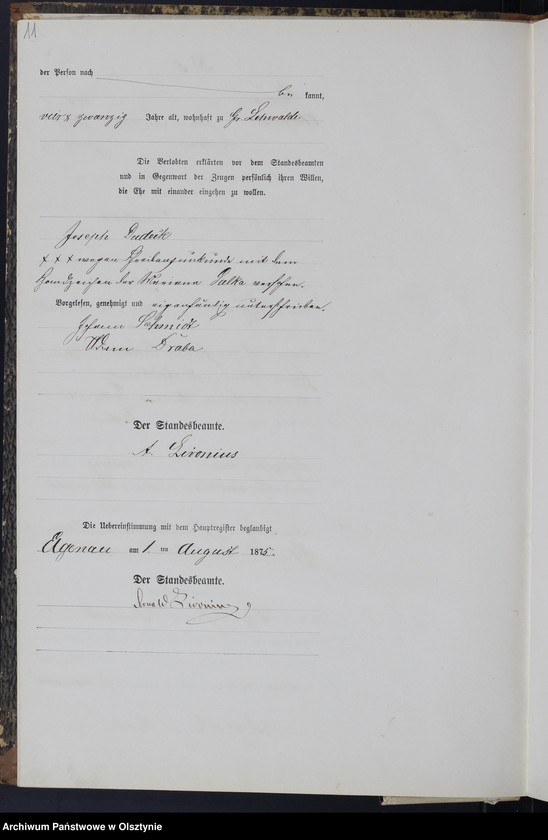 11
der Person nach be kannt,
vier & zwanzig Jahre alt, wohnhaft zu Gr. Lehwalde
Die Verlobten erklärten vor dem Standesbeamten
und in Gegenwart der Zeugen persönlich ihren Willen,
die Ehe mit einander eingehen zu wollen.
Joseph Dudeck
x x x wegen Schreibensunkunde mit dem
Handzeichen der Mariana Palka versehen.
Vorgelesen, genehmigt und eigenhändig unterschrieben.
Johann Schmidt
Adam Draba
Der Standesbeamte.
A. Livonius
Die Uebereinstimmung mit dem Hauptregister beglaubigt
Elgenau am 1. ten August 1875.
Der Standesbeamte.
Livonius
Archiwum Państwowe w Olsztynie